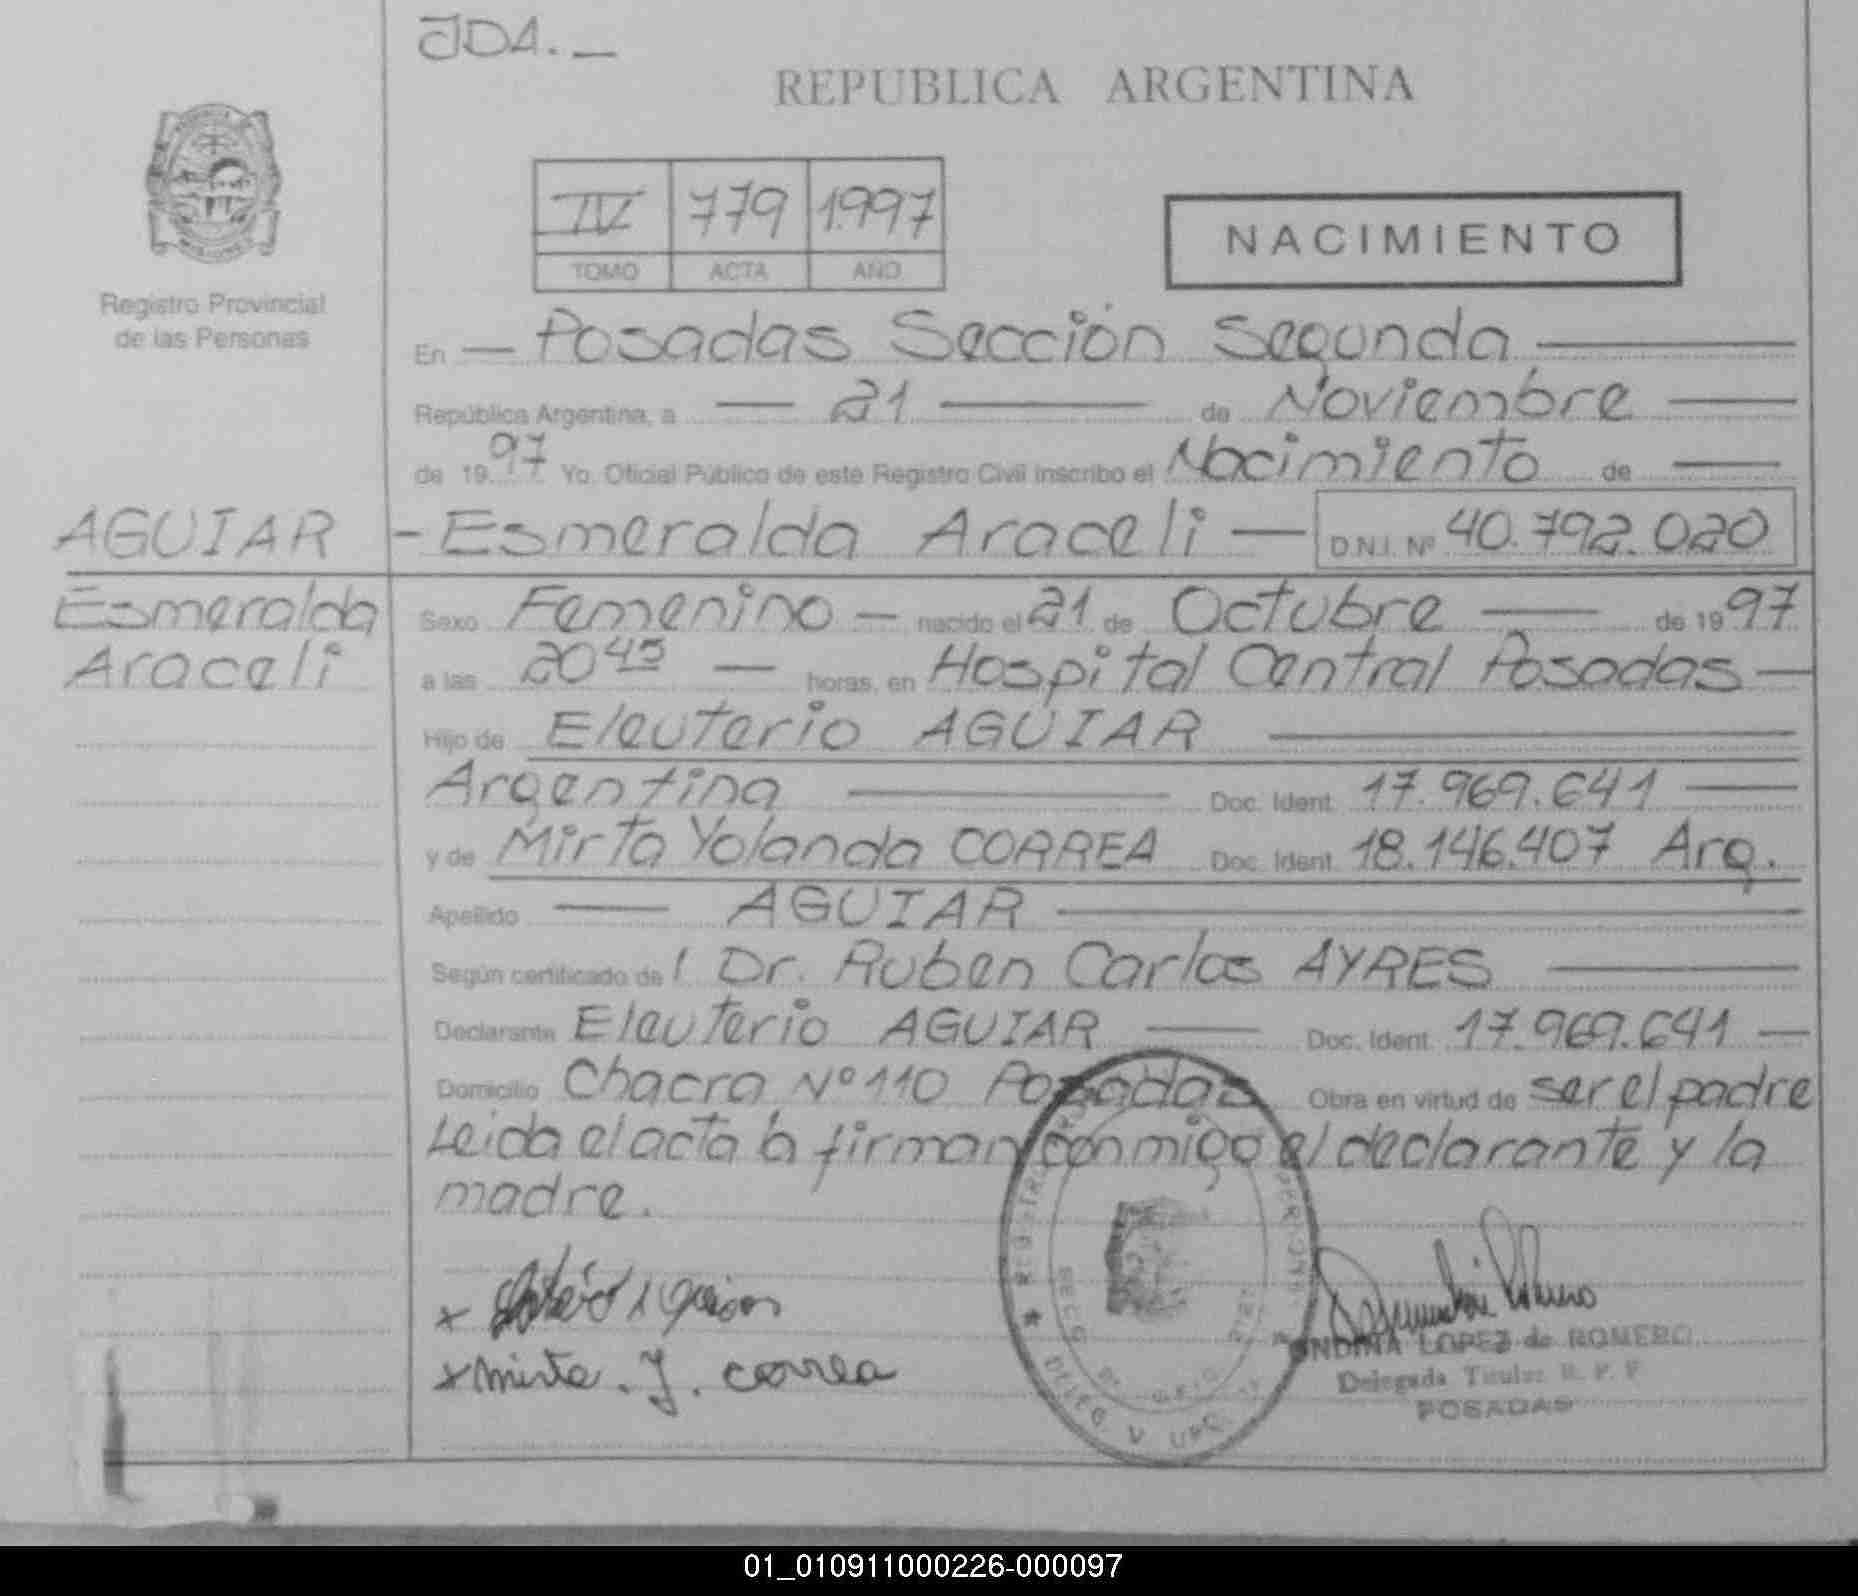 JDA.
REPUBLICA ARGENTINA
IV 779 1.997
TOMO ACTA AÑO
NACIMIENTO
Registro Provincial
de las Personas
En Posadas Sección Segunda
República Argentina, a 21 de Noviembre
de 1997 Yo. Oficial Público de este Registro Civil inscribo el Nacimiento de
AGUIAR - Esmeralda Araceli — D.N.I. Nº 40.792.020
Esmeralda
Araceli
Sexo Femenino — nacido el 21 de Octubre de 1997
a las 20 45 — horas, en Hospital Central Posadas —
Hijo de Eleuterio AGUIAR
Argentina Doc. Ident. 17.969.641
y de Mirta Yolanda CORREA Doc. Ident. 18.146.407 Arg.
Apellido AGUIAR
Según certificado de l Dr. Ruben Carlos AYRES
Declarante Eleuterio AGUIAR Doc. Ident. 17.969.641 —
Domicilio Chacra Nº 110 Posadas Obra en virtud de ser el padre
Leida el acta la firman conmigo el declarante y la
madre.
x mirta . y . correa
LOPEZ de ROMERO
Delegada Titular R. P. P
POSADAS
01_010911000226-000097